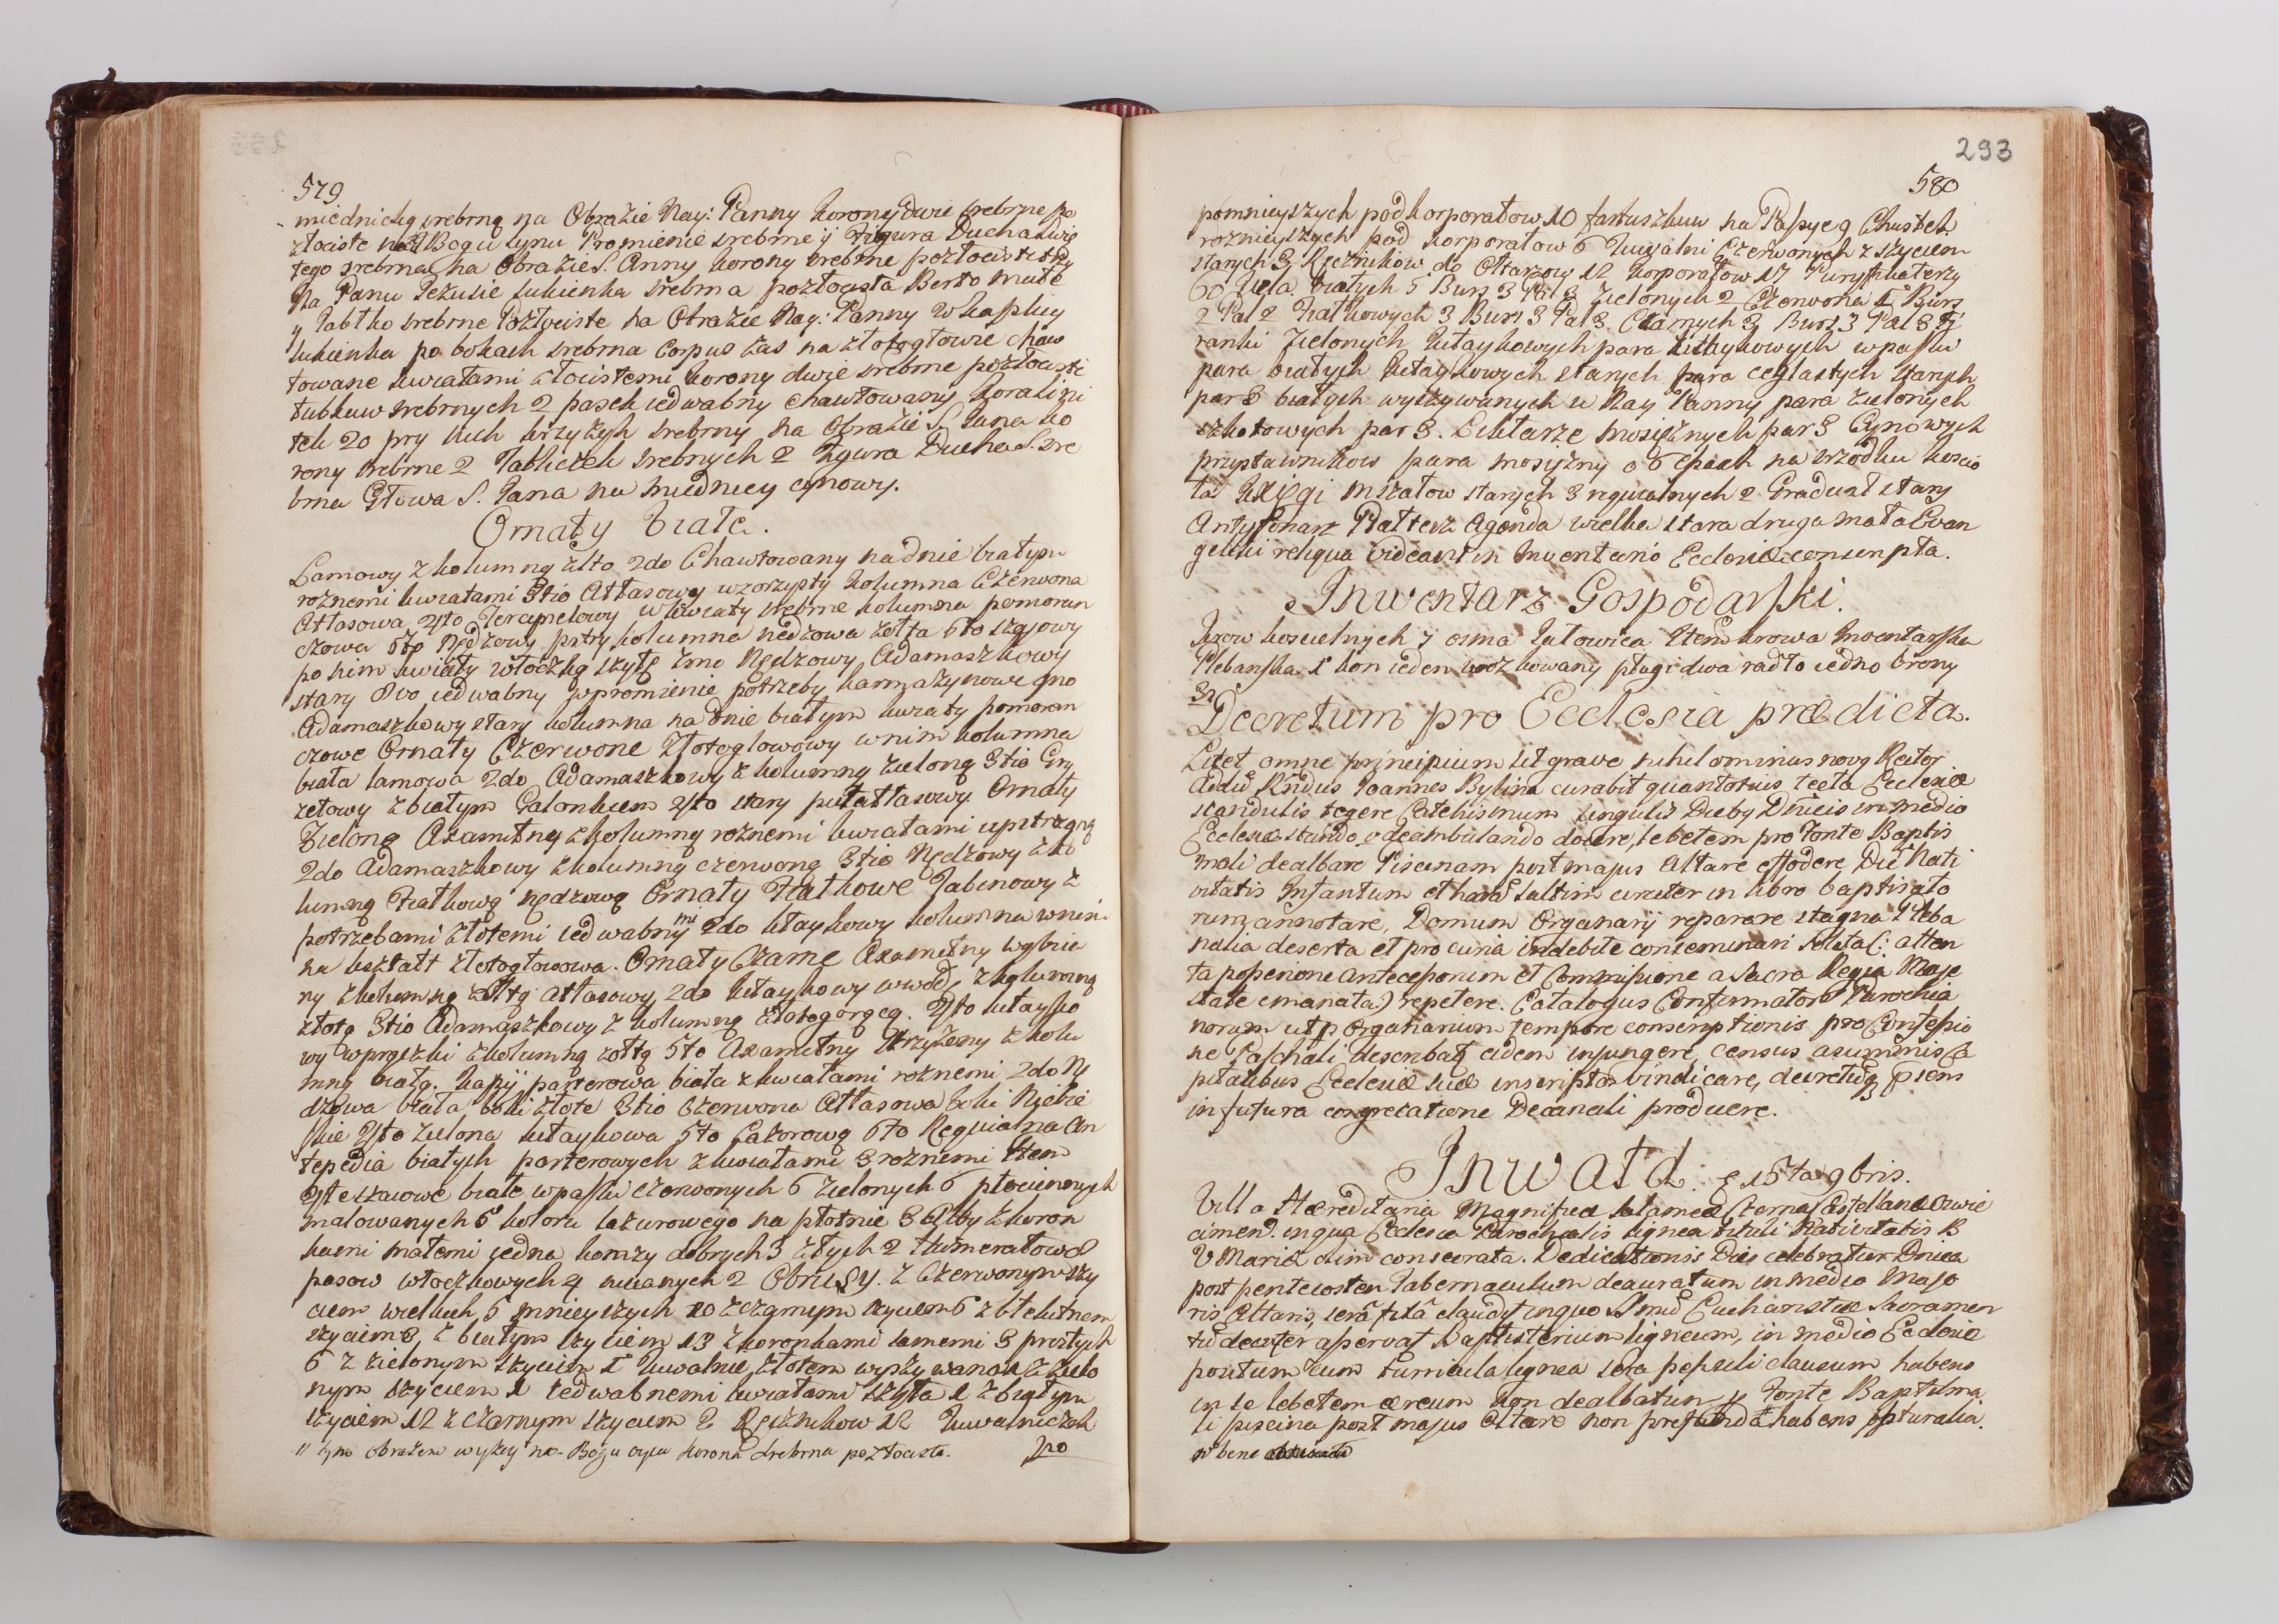 579
miednicką srebrną na Obrazie Nay: Panny korony dwie srebrne po
złociste na Bogu Synu Promienie srebrne y Figura Ducha Swię
tego srebrna na Obrazie S. Anny korony srebrne pozłociste trzy
Na Panu Jezusie sukienka srebrna pozłocista Berło małe
y Jabłko srebrne Pozłociste na Obrazie Nay: Panny W kaplicy
sukienka po bokach srebrna corpus zas na złotogłowie chaw
towane kwiatami złocistemi korony dwie srebrne pozłociste
tubkuw srebrnych 2 pasek iedwabny chawtowany koraliki
tek 20 przy nich krzyżyk srebrny na Obrazie S. Jana ko
rony srebrne 2 Tabliczek srebrnych 2 Figura Ducha S. sre
brna Głowa S. Jana na miednicy cynowy.
Ornaty białe.
Lamowy z kolumną żłto 2do Chawtowany na dnie białym
roznemi kwiatami 3tio Atłasowy wzorzysty kolumna Czerwona
Atłasowa 4to Tercynelowy w kwiaty srebrne kolumna pomoran
czowa 5to Nędzowy pstry kolumna nędzowa żółta 6to szajowy
po nim kwiaty włoczką szyte 7mo Nędzowy Adamaszkowy
stary 8vo iedwabny w promienie potrzeby karmazynowe 9no
Adamaszkowy stary kolumna na dnie białym kwiaty pomoran
czowe Ornaty Czerwone Złotogłowowy w nim kolumna
biała lamowa 2do Adamaszkowy z kolumną zieloną 3tio Gry
zetowy z białym Galonkiem 4to stary pułatłasowy. Ornaty
Zielone Axamitny z kolumną roznemi kwiatami upstrzoną
2do Adamaszkowy z kolumną czerwoną 3tio Nędzowy z ko
lumną fiałkową nędzową Ornaty Fiałkowe Tabinowy z
potrzebami złotemi iedwabnymi 2do kitaykowy kolumna w nim
na kształt złotogłowowa. Ornaty Czarne Axamitny wybiia
ny z kolumną żółtą atłasową 2do kitaykowy w wodę z kolumną
złotą 3tio Adamaszkowy z kolumną złotogorącą. 4to kitayko
wy w prążki z kolumną żołtą 5to Axamitny strzyżony z kolu
mną białą. Kapy parterowa biała z kwiatami roznemi 2do Nę
dzowa biała boki złote 3tio czerwona Atłasowa boki Niebie
skie 4to zielona kitaykowa 5to Lazorową 6to Requialna An
tepedia białych parterowych z kwiatami 3 roznemi Item
4 teszaiowe białe w paski czerwonych 6 zielonych 6 płociennych
malowanych 5 koloru lazurowego na płotnie 3 Alby z koron
kami małemi iedna komzy dobrych 3 złych 2 Humerałow 8
pasow włoczkowych 4 nicianych 2 Obrusy. z Czerwonym szy
ciem wielkich 6 mnieyszych 10 z czarnym szyciem 6 z błękitnem
szyciem 3, z białym szyciem 13 z koronkami samemi 3 prostych
6 z zielonym szyciem 1 tuwalnie złotem wyszywana z zielo
nym szyciem 1 iedwabnemi kwiatami szyta 1 z białym
szyciem 12 z czarnym szyciem 2 Ręcznikow 12 Tuwalniczek
obrazem wyszy na Bogu oycu korona srebrna pozłocista. po
293
580
pomnieyszych pod korporałow 10 fartuszkuw na Pulpyt 9 Chustek
roznieyszych pod korporałow 6 Tuwalni Czerwonych z szyciem
starych 3 Ręcznikow do Ołtarzow 12 korporałow 17 Puryfikaterzy
60 Vela Białych 5 Burs 3 Pal 3 Zielonych 2 Czerwona 1 Burs
2 Pal 2 Fiałkowych 3 Burs 3 Pal 3 Czarnych 3 Burs 3 Pal 3 Fi
ranki Zielonych kitaykowych para kitaykowych w paski
para białych kitaykowych starych para ceglastych starych
par 3 białych wyszywanych u Nay Panny para zielonych
szkotowych par 3. Lichtarze mosiężnych par 3 Cynowych
przystawnikow para mosiężny o 6 cpach na srzodku koscio
ła Xięgi mszałow starych 3 requialnych 2 Graduał stary
Antyfonarz Psałterz Agenda wielka stara druga mała Evan
geliki reliqua videantur in Inventario Ecclesiæ conscripta.
Inwentarz Gospodarski.
Krow koscielnych 7 osma Jałowica Item krowa Inwentarska
Plebanska 1 kon ieden wozkowany pługi dwa radło iedno brony
3y
Decretum pro Ecclesia prædicta.
Licet omne principium sit grave nihilominus novg Rector
Addũ Rndus Joannes Bylina curabit quantotius tecta Ecclesiæ
scandulis tegere Catechismum singulis Dieby Dnicis in medio
Ecclesiæ stando, o deambulando docere, lebetem pro Fonte Baptis
mali dealbare Piscinam post majus Altare effodere Diẽ Nati
vitatis Infantium et horã saltim circiter in libro baptisato
rum annotare, Domum Organarij reparare stagna Pleba
nalia deserta et pro curia indebite conseminari solita (: atten
ta possessione antecessorum et Commissione a Sacra Regia Maje
state emanata) repetere. Catalogus Confirmator Parochia
norum ut p Organarium tempore conscriptionis pro Confessio
ne Paschali describat eidem injungere, census a summis Ca
pitalibus Ecclesiæ suæ inscriptos vindicare, decretũq psens
in futura congregatione Decanali producere.
Inwałd: 15ta 9bris.
Villa Hæreditaria Magnificæ Salomeæ Czerna Castellanæ Oswie
cimen. in qua Ecclesia Parochialis lignea tituli Nativitatis B
V Mariæ olim consecrata. Dedicationis Dies celebratur Dnica
post pentecosten Tabernaculum deauratum in medio Majo
ris Altaris, serâ fixâ claudit in quo SSmũ Eucharistiæ Sacramen
tũ decenter asservat Baptisterium ligneum, in medio Ecclesiæ
positum cum turricula lignea sera pessuli clausum habens
in se lebetem æreum non dealbatum y Fonte Baptisma
li piscina post majus Altare non profundã habens scripturalia
n bene